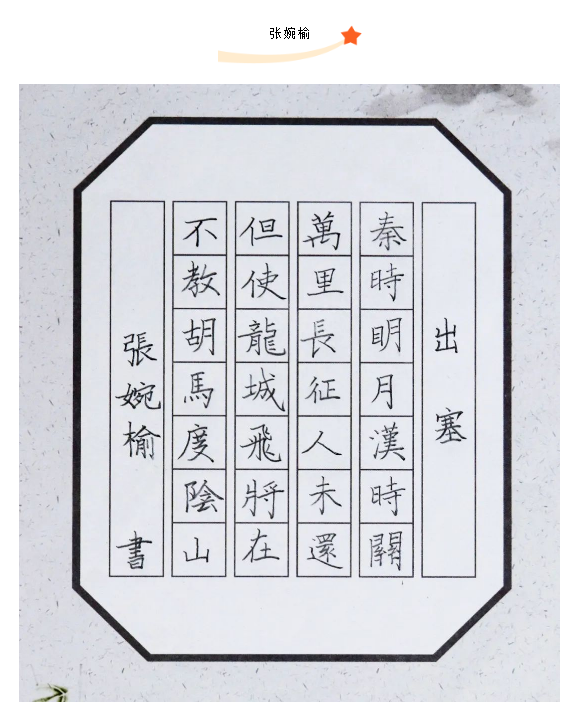 张婉榆
出塞
秦時明月漢時關
萬里長征人未還
但使龍城飛將在
不教胡馬度陰山
張婉榆 書